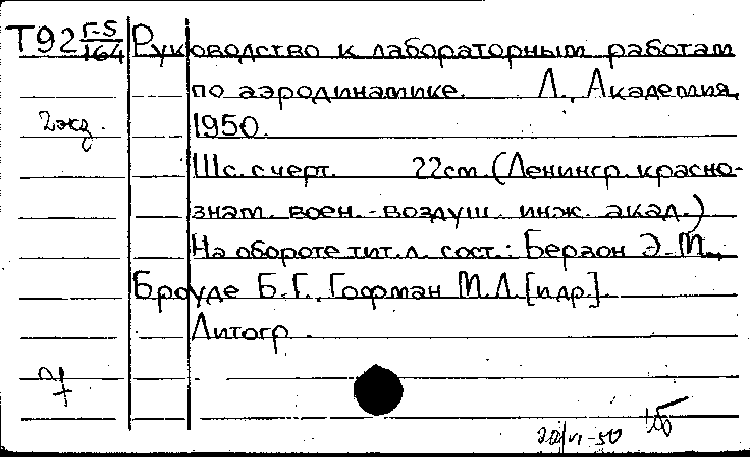 Т92 Г-5/164 Руководство к лабораторным работам
по аэродинамике. Л., Академия,
2экз. 1950.
111с. с черт. 22см. (Ленингр. красно-
знам. воен.-воздуш. инж. акад.)
На обороте тит. л. сост.: Берзон Э.М.,
Броуде Б.Г., Гофман М.Л. [и др.].
Литогр.
20/VI-50